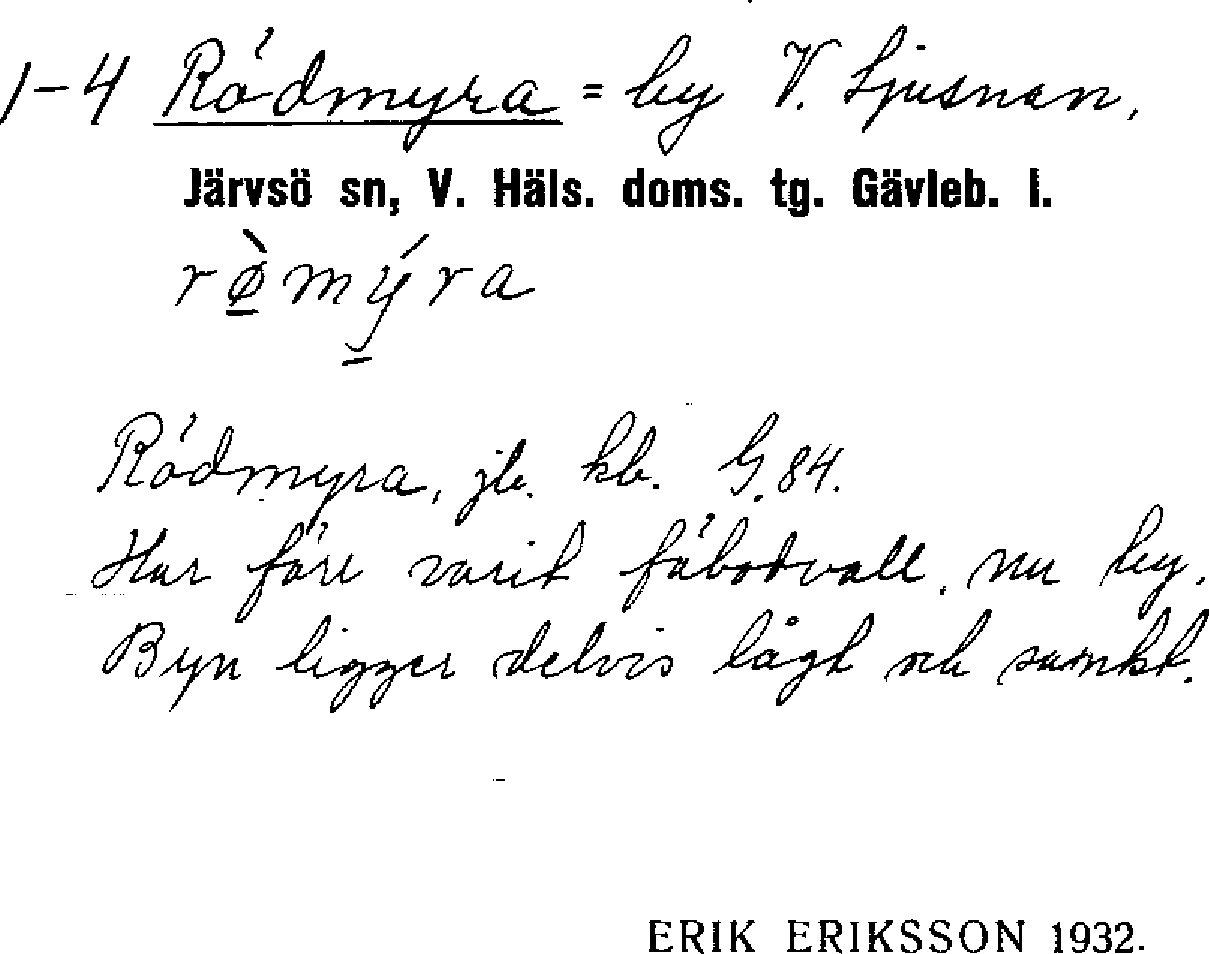 1-4 Rödmyra = by V. Ljusnan,
Järvsö sn, V. Häls. doms. tg. Gävleb. l.
rø̀mýra
Rödmyra, jb. kb. G. 84.
Har förr varit fäbodvall, nu by.
Byn ligger delvis lågt och sumkt.
ERIK ERIKSSON 1932.